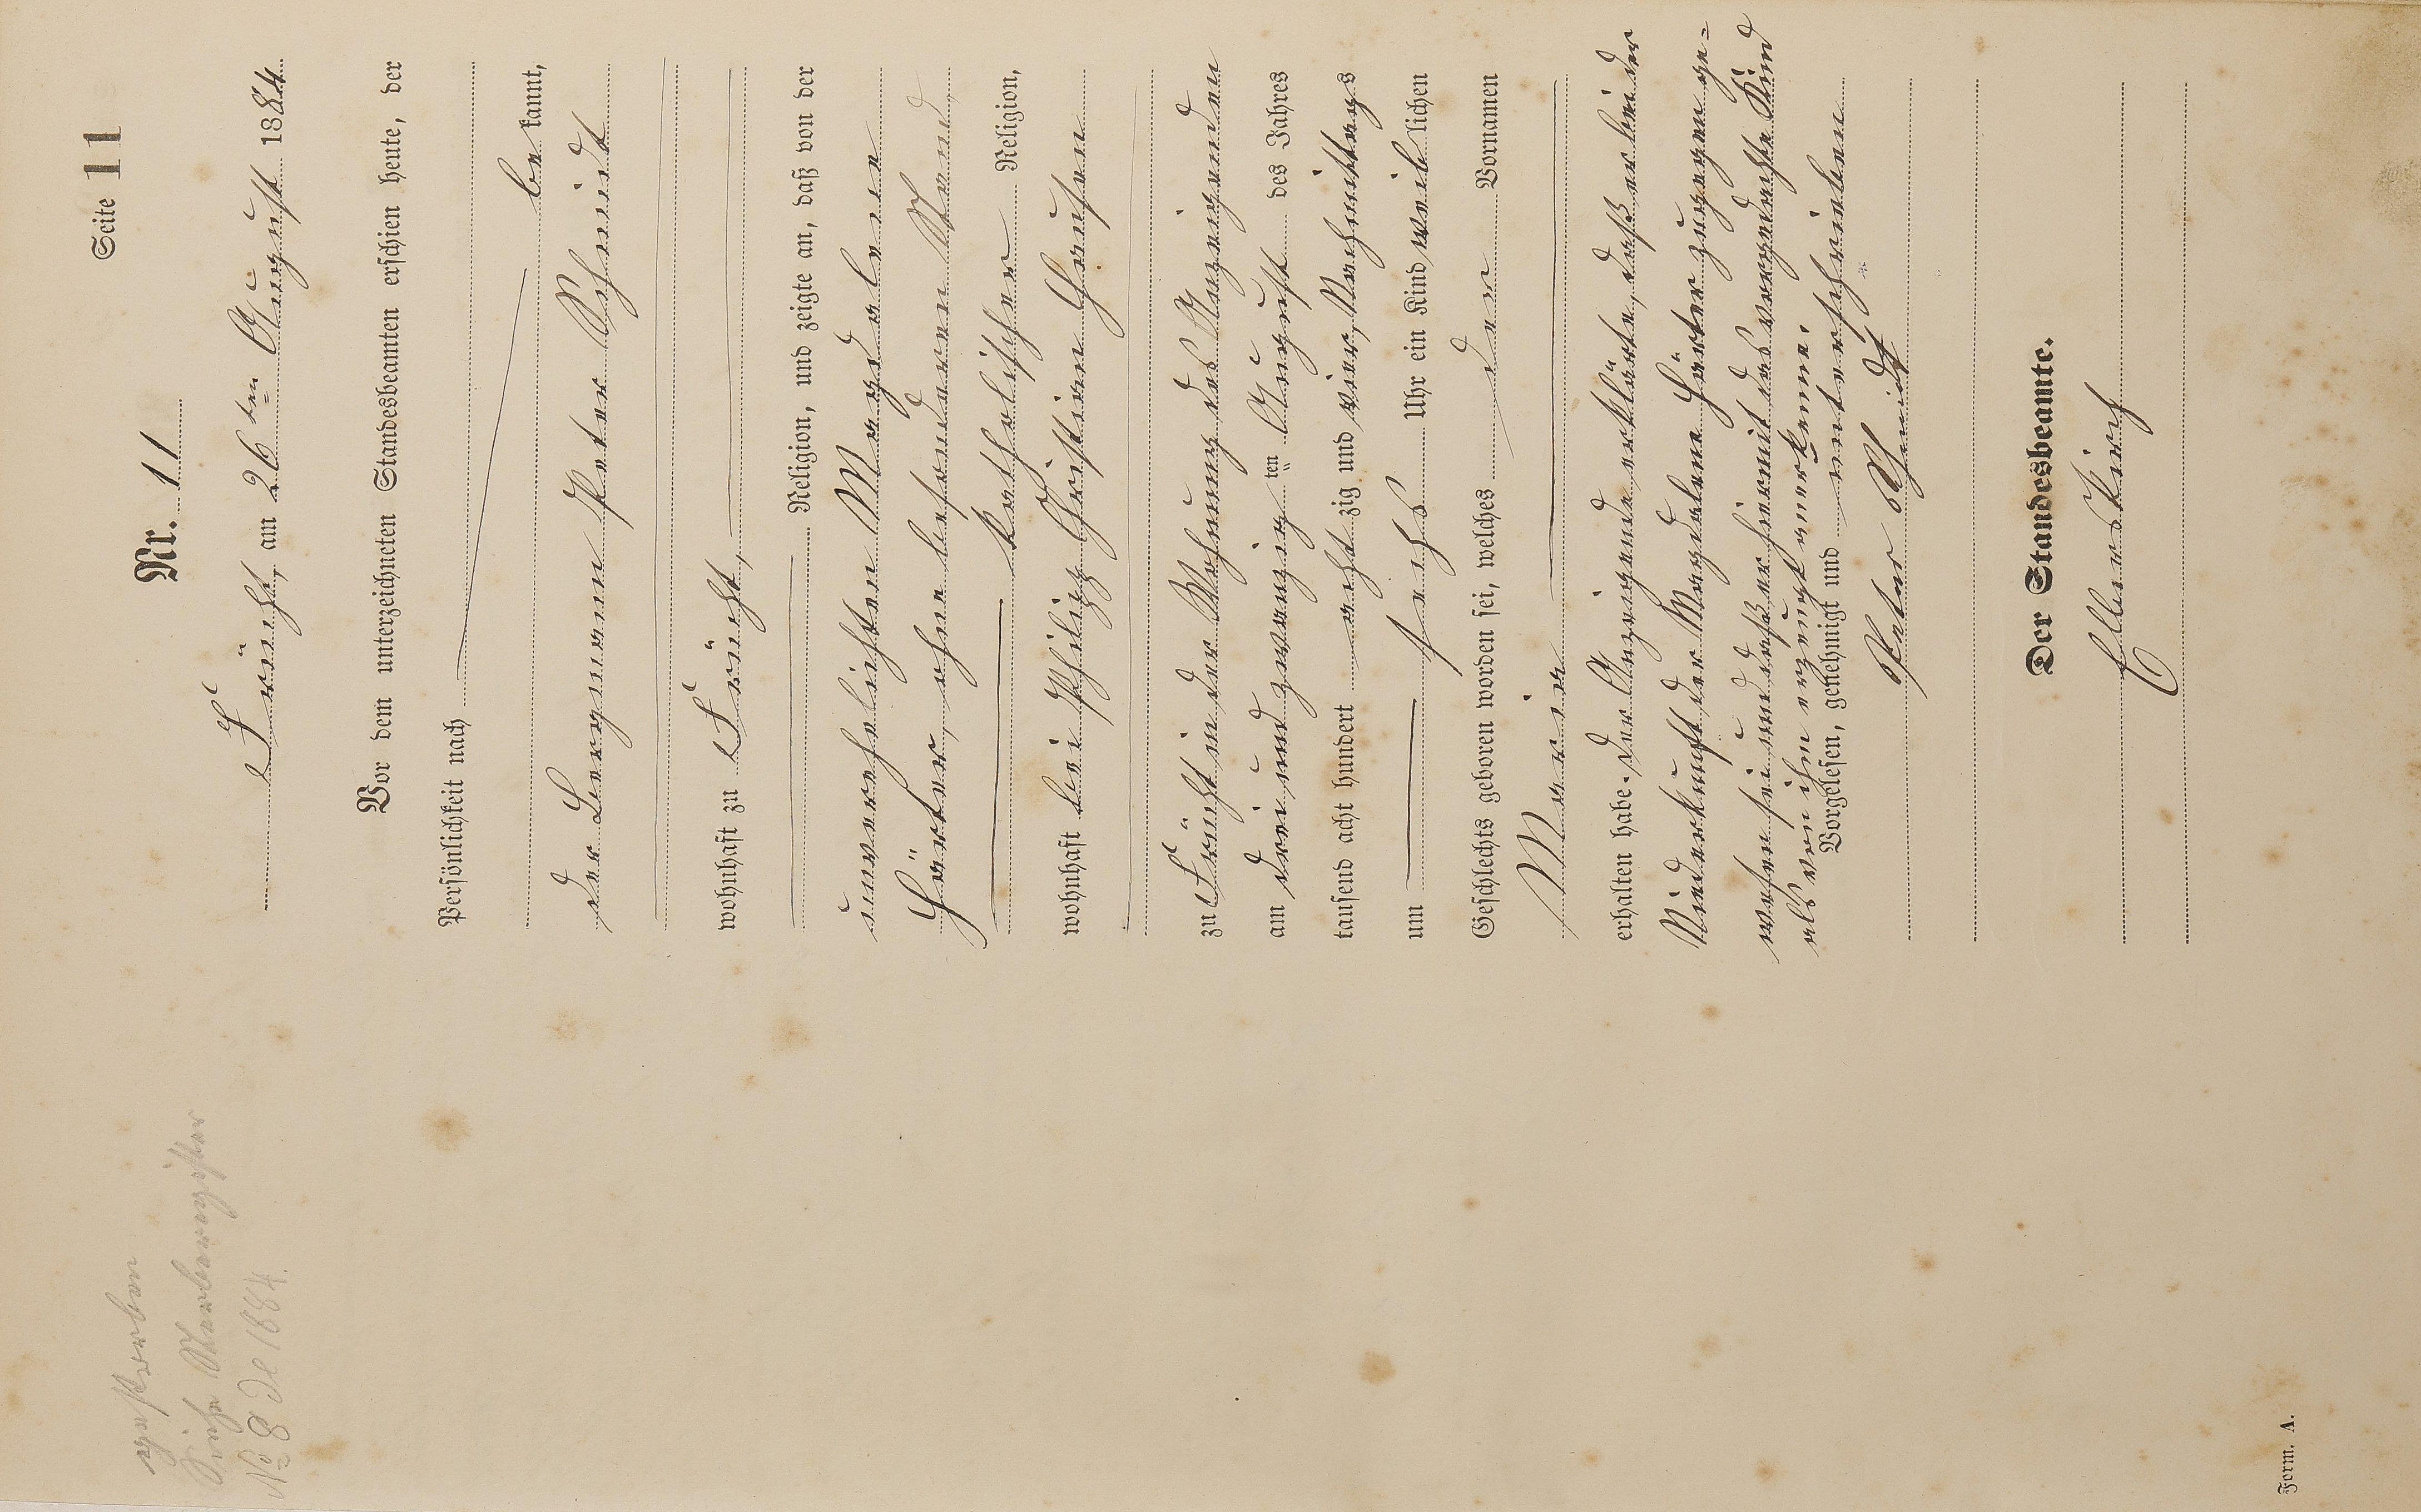 Seite 11
Nr. 11
Frücht, am 26ten August 1884
Vor dem unterzeichneten Standesbeamten erschien heute, der
Persönlichkeit nach
be kannt,
der Bergmann Peter Schmidt
wohnhaft zu Frücht,
Religion, und zeigte an, daß von der
unverehelichten Magdalene
Härter, ohne besonderen Stand,
katholischer Religion,
wohnhaft bei Philipp Christian
zu Frücht in der Wohnung des Anzeigenden
am drei und zwanzig ten August des Jahres
tausend acht hundert acht zig und vier, Nachmittags
um sechs Uhr ein Kind weib lichen
Geschlechts geboren worden sei, welches den Vornamen
Maria
erhalten habe. Der Anzeigende erklärte, daß er bei der
Niederkunft der Magdalene Härter zugegen ge-
wesen sei und daß er hiermit das vorgedachte Kind
als von ihm erzeugt anerkenne.
Vorgelesen, genehmigt und unterschrieben
Peter Schmidt
Der Standesbeamte.
Ellerskirch
gestorben
Siehe Sterberegister
No 8 de 1884.
Form. A.